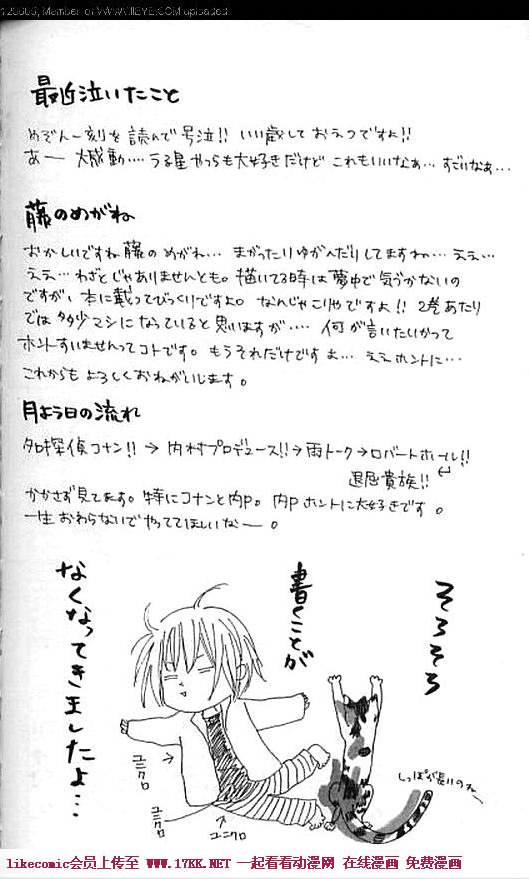 Member of WWW.IIEYE.COM uploaded
最近泣いたこと
めぞん一刻を読んで号泣!! いい歳しておえつですよ!!
あー 大感動…。うる星やつらも大好きだけど これもいいなぁ… すごいなぁ…
藤のめがね
おかしいですね藤の めがね… まがったりゆがんだりしてますね… ええ…
ええ… わざとじゃありませんとも。描いてる時は夢中で気づかないの
ですが、本に載ってびっくりですよ。なんじゃこりゃですよ!! 2巻あたり
では多少マシになっていると思いますが…. 何が言いたいかって
ホントすいませんってコトです。もうそれだけですよ… ええホントに…
これからもよろしくおねがいします。
月よう日の流れ
名探偵コナン!! → 内村プロデュース!! → 雨トーク → ロバートホール!!
退屈貴族!!
かかさず見てます。特にコナンと内P。内Pホントに大好きです。
一生おわらないでやっててほしいなー。
そろそろ
書くことが
なくなってきましたよ…
ユニクロ
ユニクロ
ユニクロ
しっぽが長いのね
likecomic会员上传至 WWW.17KK.NET 一起看看动漫网 在线漫画 免费漫画